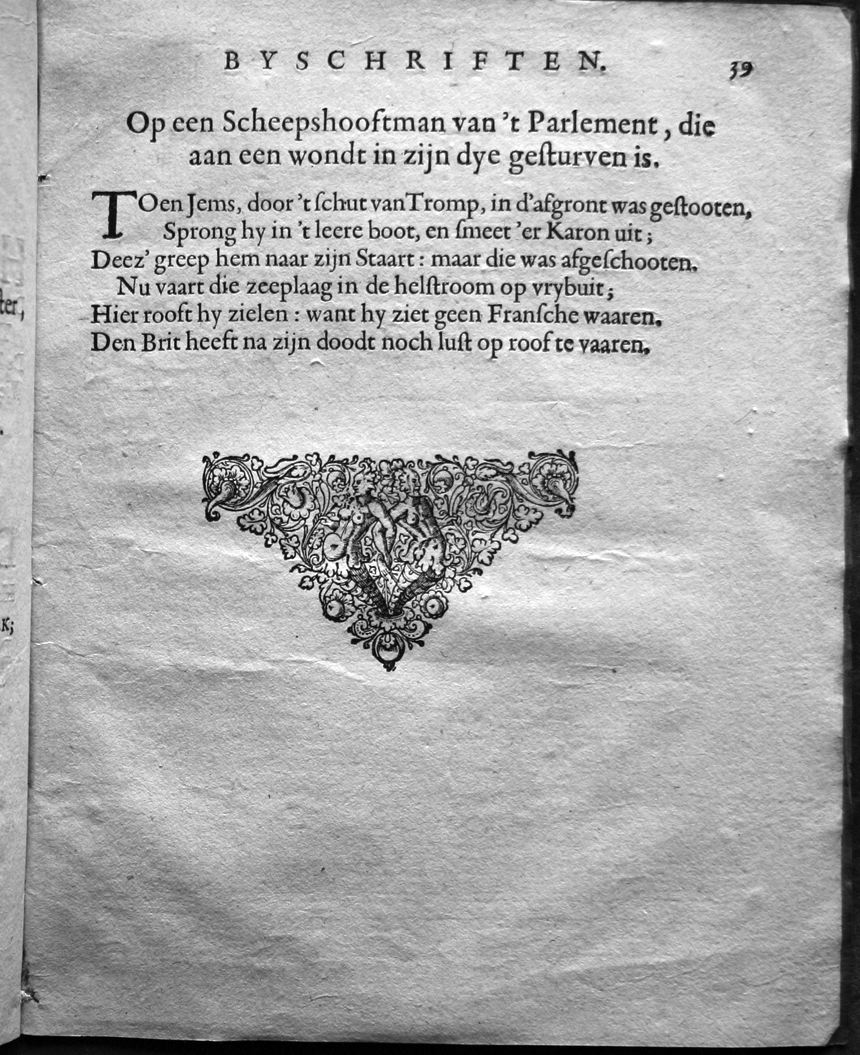 BYSCHRIFTEN. 39
Op een Scheepshooftman van 't Parlement, die
aan een wondt in zijn dye geſturven is.
TOen Jems, door 't ſchut van Tromp, in d'afgront was geſtooten,
Sprong hy in 't leere boot, en ſmeet 'er Karon uit;
Deez' greep hem naar zijn Staart: maar die was afgeſchooten.
Nu vaart die zeeplaag in de helſtroom op vrybuit;
Hier rooft hy zielen: want hy ziet geen Franſche waaren.
Den Brit heeft na zijn doodt noch luſt op roof te vaaren.
ſter,
K;